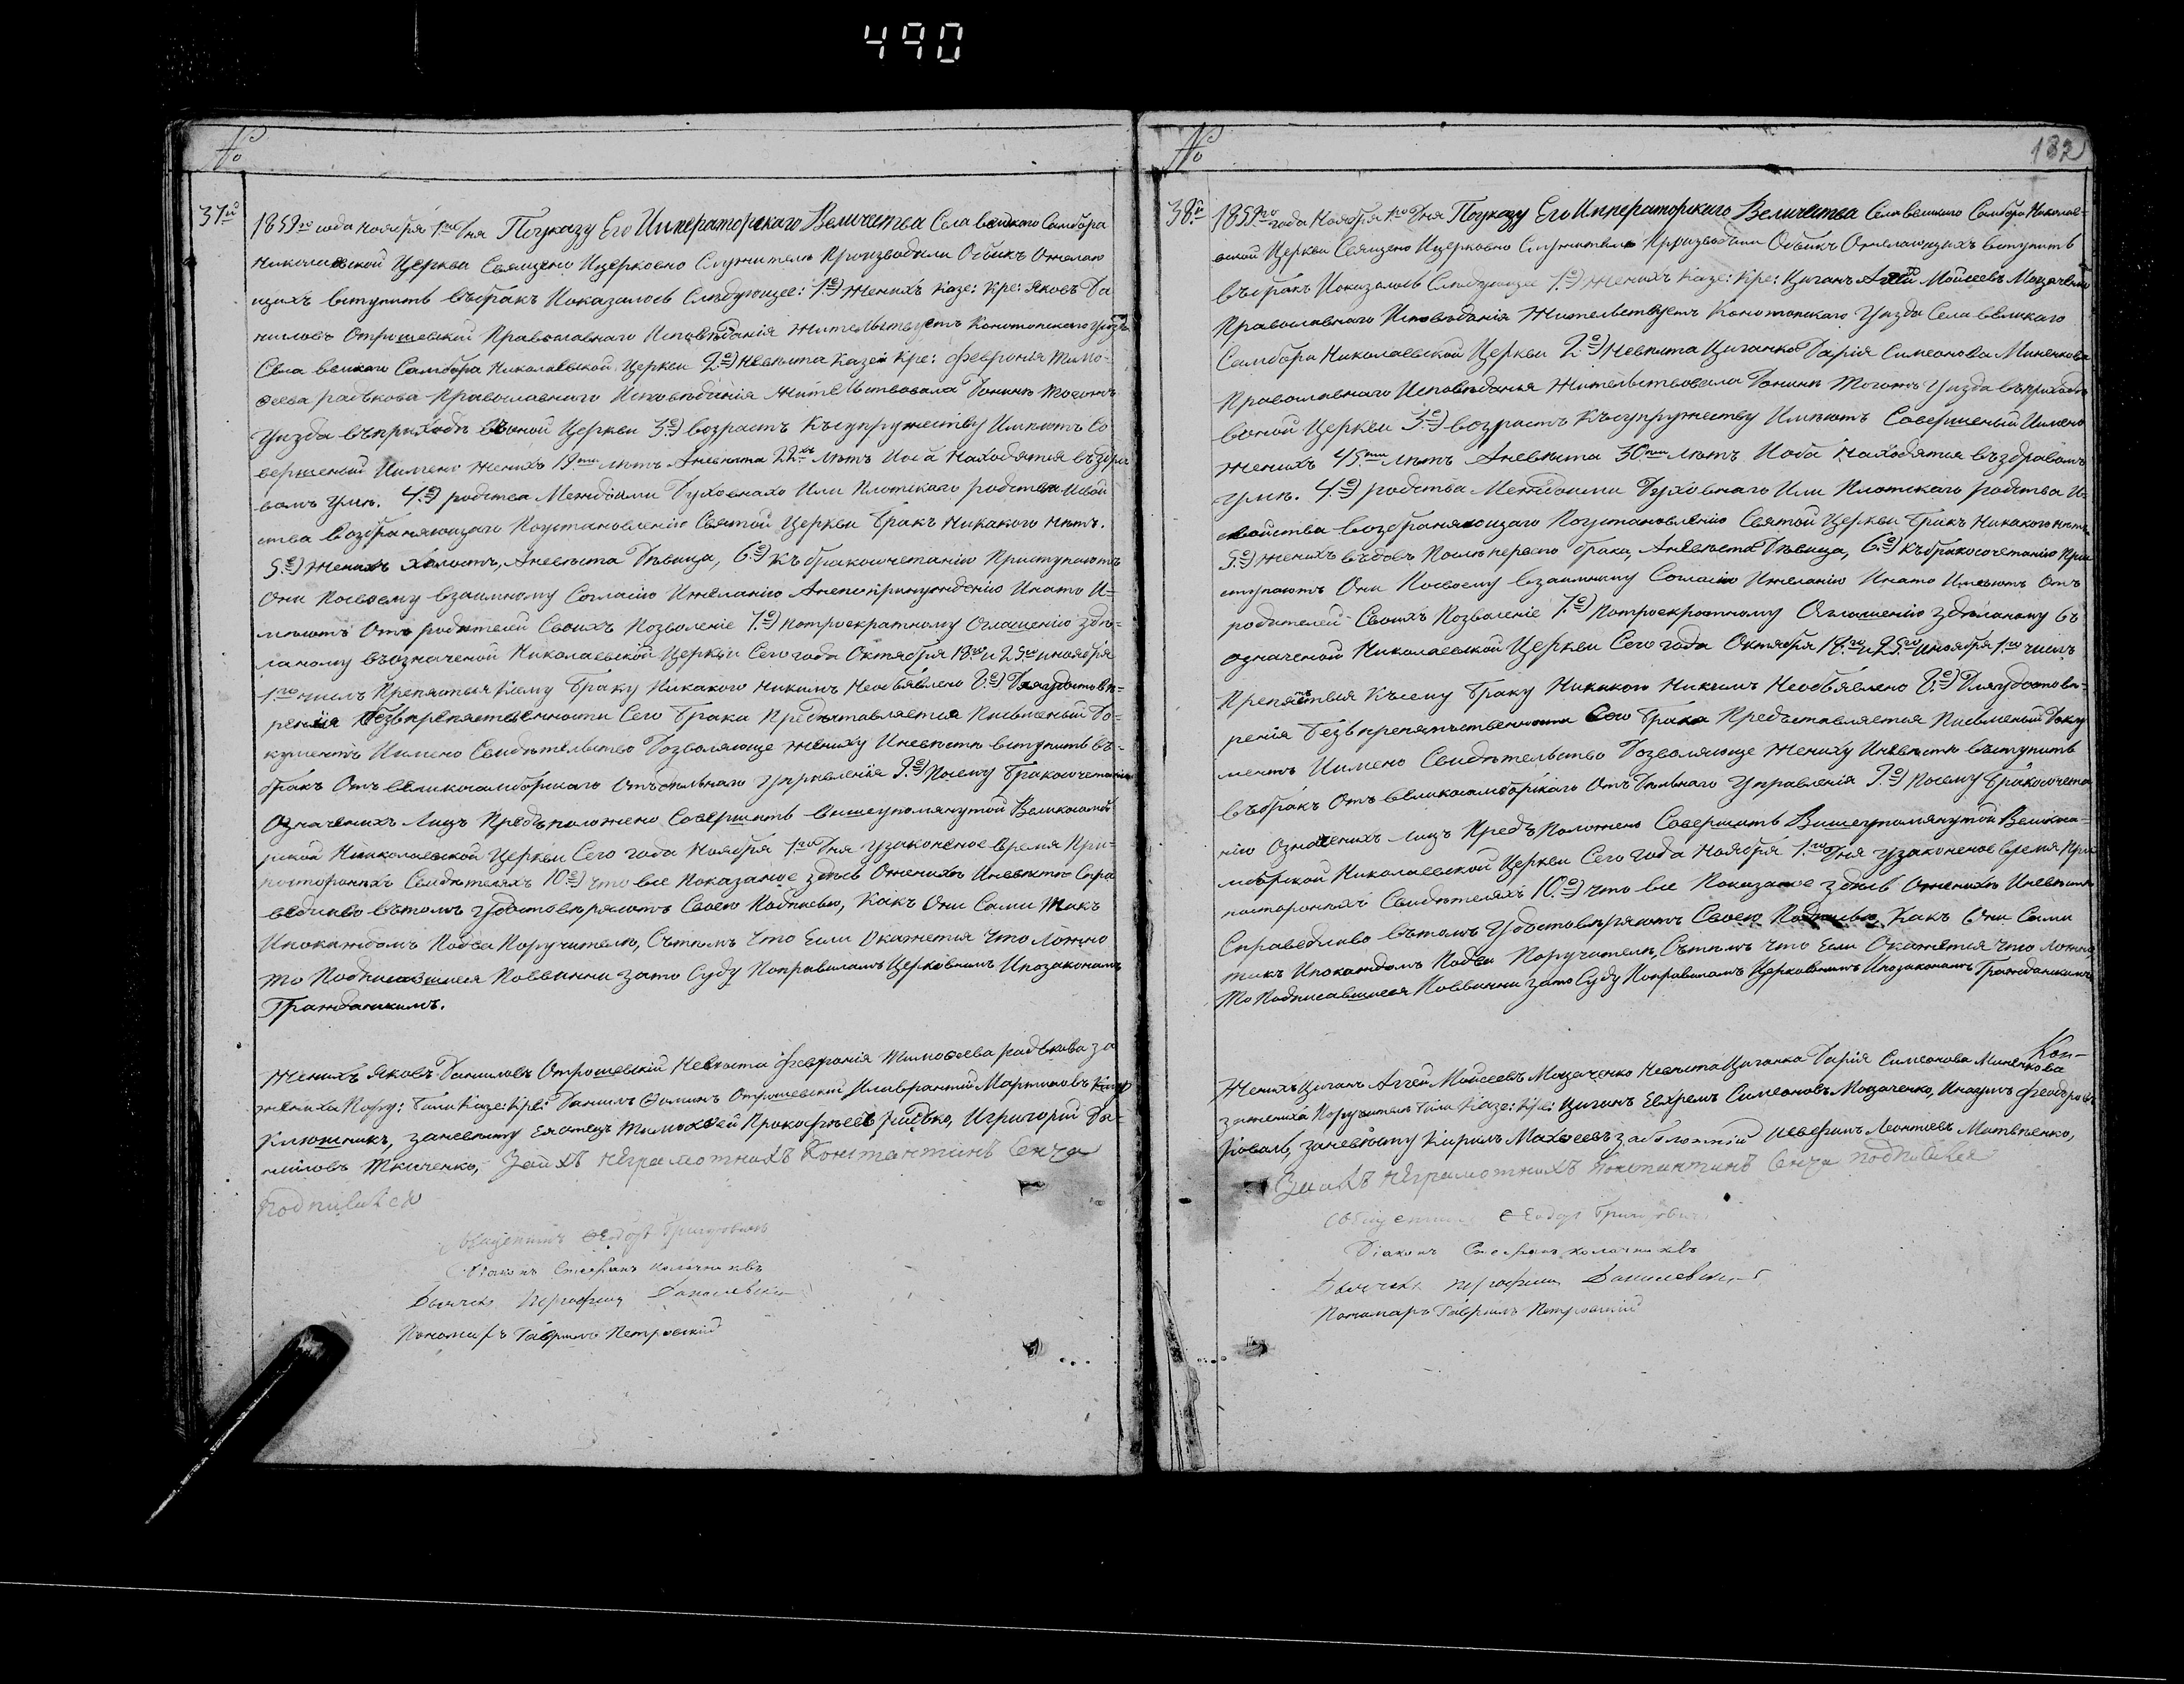 490
№
37й
1859го года ноября 1го дня По указу Его Императорскаго Величества Села великого Самбора
Николаевской Церкви Священо Ицерковно Служители Производили Обыкъ Ожелаю
щихъ вступить въбракъ Показалось Следующее: 1.е) Женихъ Казе: Кре: Яковъ Да
ниловъ Отрошевский Православнаго Исповѣданія Жительствуетъ Конотопского Уизда
Села великого Самбора Николаевской Церкви 2.е) Невѣста Казен Кре: Февронія Тимо-
ѳеева радькова Православного Исповѣданія Жительствовала Донинѣ Тогожъ
Уизда въприходѣ воной Церкви 3.е) возрастъ Късупружеству Имѣютъ Со
вершеный Имено Женихъ 19ти лѣтъ Аневѣста 22хъ лѣтъ Иоба Находятся въздра
вомъ умѣ. 4.е) родства Междоими Духовнахо Или Плотского родства Исвой
ства Возбраняющаго Поустановленію Святой Церкви Бракъ Никакого нѣтъ.
5.е) Женихъ Холостъ, Аневѣста Дѣвица, 6.е) Къ бракосочетанію Приступаютъ
Они Посвоему взаимному Согласію Ижеланію Анепопринуждению Инато И-
мѣютъ Отъ родителей Своихъ Позволеніе 7.е) Потроекратному Оглашенію здѣ-
ланому въозначеной Николаевской Церкви Сего года Октября 18го и 25го иноября
1го числъ Препятстия Ксему Браку Никакого Никимъ Необъявлено 8.е) Дляудостовѣ-
ренія безвпрепятственности Сего Брака Предъставляется Писменый До-
кументъ Имено Свидѣтельство Дозволяюще жениху Иневѣстѣ вступить въ-
бракъ Отъ великосамборскаго Отъдѣльнаго Управленія 9.е) Посему Бракосочетанію
Означенихъ Лицъ Предъположено Совершить вишеупомянутой Великосамбо
рской Николаевской Церкви Сего года Ноября 1.го Дня узаконеное время При-
постороныхъ Свидѣтеляхъ 10.е) что все Показаное здѣсь Оженихѣ Иневѣстѣ Спра
ведливо вътомъ Удостовѣряютъ Своею Подписью, Какъ Они Сами Такъ
Ипокаждомъ Подва Поручителя, Сътимъ Что Если Окажется Что Ложно
то Подписавшиеся Повинни зато Суду Поправиламъ Церковнимъ Ипозаконамъ
Гражданскимъ.
Женихъ Яковъ Даниловъ Отрошевскій Невѣста Февронія Тимоѳеева радькова за
жениха Пору: Били Казе: Кре: Данилъ Отрошевский Илаврентий Мартиновъ
Ключникъ, заневѣсту Еяотецъ Тимоѳей Прокофьевъ радько, Игригорий Да-
ниловъ Ткаченко, Заихъ неграмотнихъ Константинъ Сенча
подписался
Священникъ Ѳеодоръ Григоровичъ
Діаконъ Стефанъ Колочниковъ
Дьячекъ Данилевскій
Пономарь Гаврилъ Петровскій
№
182
38й
1859го года Ноября 1го Дня Поуказу Его Императорскаго Величества Села великого Самбора Николае-
вской Церкви Священо Ицерковно Служители Производили Обыкъ Ожелающихъ вступить
въбракъ Показалось Следующее 1.е) Женихъ Казе: Кре: Циганъ Аггей Мойсеевъ Мацаченко
Православнаго Исповѣданія Жительствуетъ Конотопского Уизда Села великаго
Самбора Николаевской Церкви 2.е) Невѣста Циганка Дарія Симеонова Миненкова
Православнаго Исповѣданія Жительствовала Донинѣ Тогожъ Уизда въприходѣ
воной Церкви 3.е) возрастъ Късупружеству Имѣютъ Совершеный Имено
Женихъ 45ти лѣтъ Аневѣста 30ти лѣтъ Иоба Находятся въздравомъ
умѣ. 4.е) родства Междоими Духовнаго Или Плотскаго родства И-
свойства возбраняющаго Поустановленію Святой Церкви Бракъ Никакого нѣтъ
5.е) Женихъ въдовъ Послѣ перваго брака, Аневѣста Дѣвица, 6.е) Къбракосочетанію При
ступаютъ Они Посвоему взаимному Согласію Ижеланію Инато Имѣютъ Отъ
родителей Своихъ Позволеніе 7.е) Потроекратному Оглашенію здѣланому въ
означеной Николаевской Церкви Сего года Октября 18го и 25го иноября 1го числъ
Препятствия Късему Браку Никакого Никимъ Необъявлено 8.е) Дляудостовѣ-
ренія Безъвпрепятъственности Сего Брака Предъставляется Писменый Доку
ментъ Имено Свидѣтельство Дозволяюще Жениху Иневѣстѣ въступить
въбракъ Отъ великосамборскаго Отъдѣльнаго Управленія 9.е) Посему Бракосочета
нію Означенихъ Лицъ Предъположено Совершить Вишеупомянутой Великоса-
мборской Николаевской Церкви Сего года Ноября 1.го Дня узаконеное время При
постороннихъ Свидѣтеляхъ 10.е) что все Показаное здѣсь Оженихѣ Иневѣстѣ
Справедливо вътомъ Удостовѣряютъ Своею Подписью Какъ Они Сами
такъ Ипокаждомъ Подва Поручителя, Сътимъ что Если Окажется Что Ложно
то Подписавшиеся Повинни зато Суду Поправиламъ Церковнимъ Ипозаконамъ Гражданскимъ
Женихъ Циганъ Аггей Мойсеевъ Мацаченко Невѣста Циганка Дарія Симеонова Миненкова
зажениха Поручители били Казе: Кре: Циганъ Евхремъ Симеоновъ Мацаченко, Инаумъ Феодоровъ
Коваль, заневѣсту Кирилъ Махвеевъ заболотній Исеверинъ Леонтіевъ Матвѣенко,
Заихъ неграмотнихъ Константинъ Сенча подписался
Священникъ Ѳеодоръ Григоровичъ
Діаконъ Стефанъ Колочниковъ
Дьячекъ Данилевскій
Пономаръ Гаврилъ Петровскій